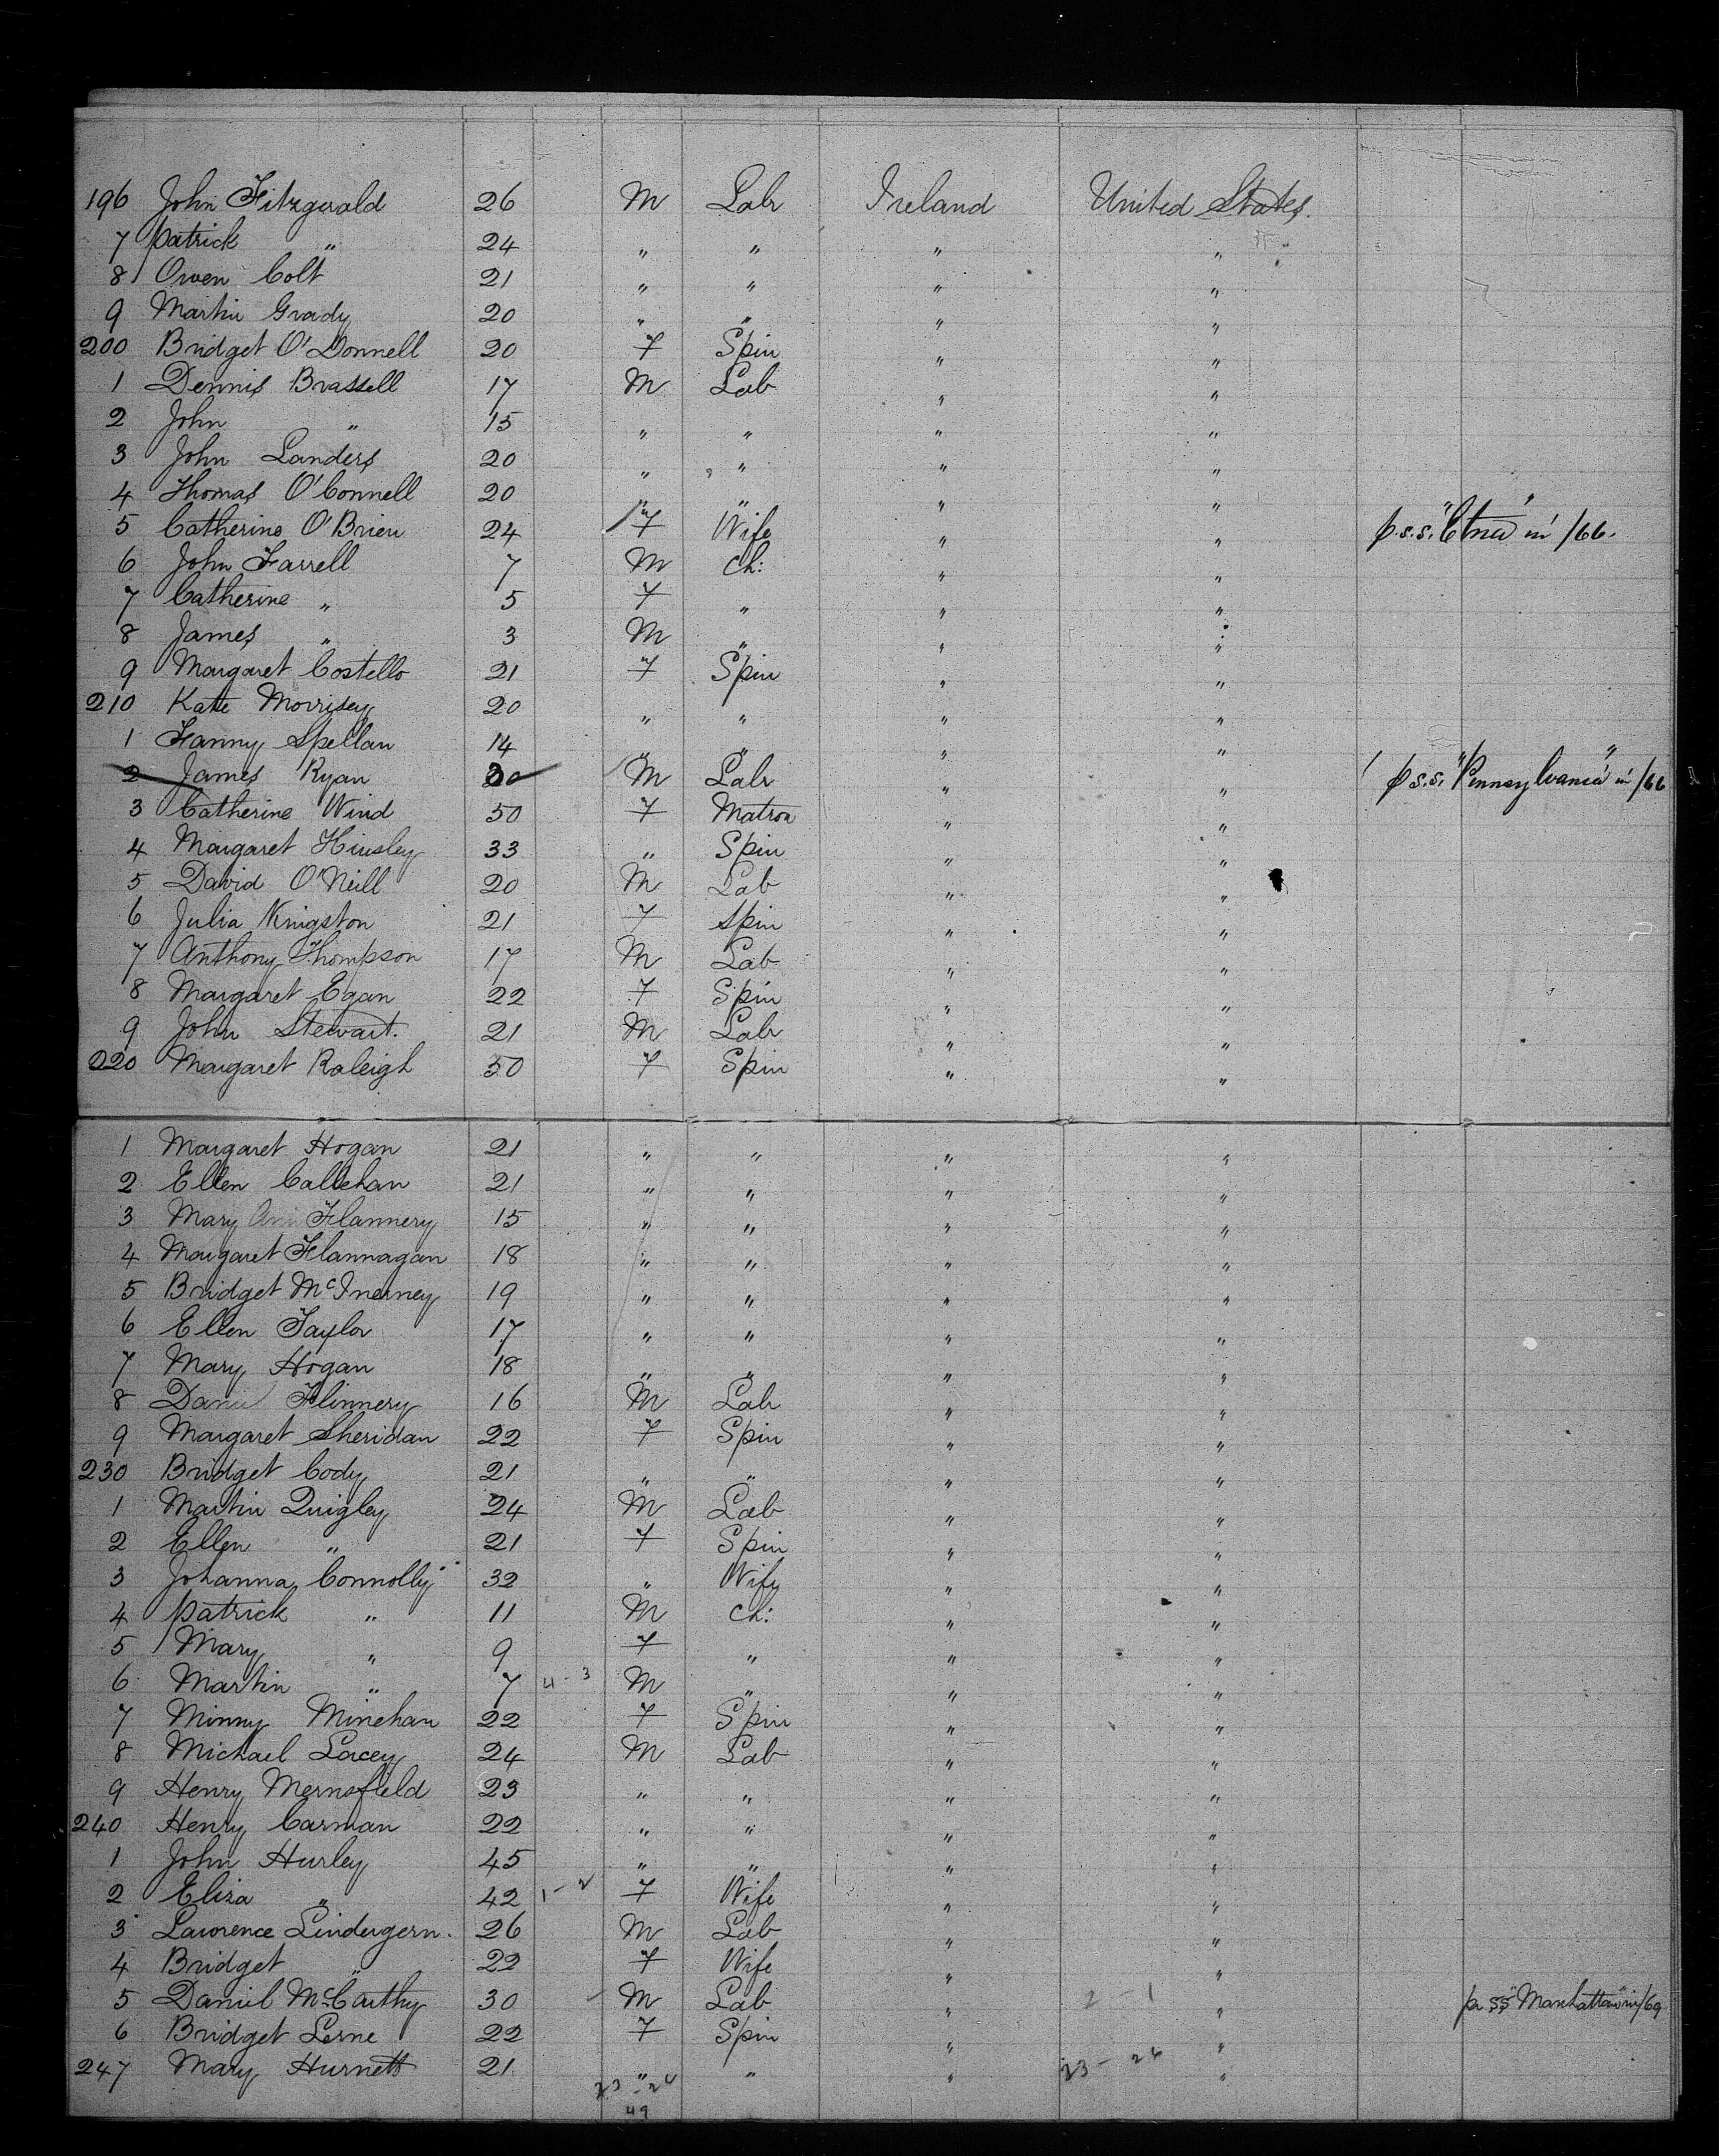 196 John Fitzgerald 26 M Labr Ireland United States.
7 Patrick " 24 " " " "
8 Owen Colt 21 " " " "
9 Martin Grady 20 " " " "
200 Bridget O'Donnell 20 F Spin " "
1 Dennis Brassell 17 M Lab " "
2 John " 15 " " " "
3 John Landers 20 " " " "
4 Thomas O'Connell 20 " " " "
5 Catherine O'Brien 24 F Wife " " p.s.s. "Etna" in /66.
6 John Farrell 7 M Ch: " "
7 Catherine " 5 F " " "
8 James " 3 M " " "
9 Margaret Costello 21 F Spin " "
210 Kate Morrisey 20 " " " "
1 Fanny Spellan 14 " " " "
2 James Ryan 20 M Labr " " p s.s. "Pennsylvania" in /66
3 Catherine Wind 50 F Matron " "
4 Margaret Hinsley 33 " Spin " "
5 David O'Neill 20 M Lab " "
6 Julia Kingston 21 F Spin " "
7 Anthony Thompson 17 M Lab " "
8 Margaret Egan 22 F Spin " "
9 John Stewart. 21 M Labr " "
220 Margaret Raleigh 50 F Spin " "
1 Margaret Hogan 21 " " " "
2 Ellen Callehan 21 " " " "
3 Mary Ann Flannery 15 " " " "
4 Margaret Flannagan 18 " " " "
5 Bridget McInerney 19 " " " "
6 Ellen Taylor 17 " " " "
7 Mary Hogan 18 " " " "
8 Daniel Flinnery 16 M Labr " "
9 Margaret Sheridan 22 F Spin " "
230 Bridget Cody 21 " " " "
1 Martin Quigley 24 M Lab " "
2 Ellen " 21 F Spin " "
3 Johanna Connolly 32 " Wife " "
4 Patrick " 11 M Ch: " "
5 Mary " 9 F " " "
6 Martin " 7 4-3 M " " "
7 Minny Minehan 22 F Spin " "
8 Michael Lacey 24 M Lab " "
9 Henry Mernsfield 23 " " " "
240 Henry Carman 22 " " " "
1 John Hurley 45 " " " "
2 Eliza " 42 1-2 F Wife " "
3 Lawrence Lindergern. 26 M Lab " "
4 Bridget " 22 F Wife " "
5 Daniel McCarthy 30 M Lab " 2-1 " pr SS "Manhattan" in /69
6 Bridget Lerne 22 F Spin " "
247 Mary Hurnett 21 " " " 23-26 "
49